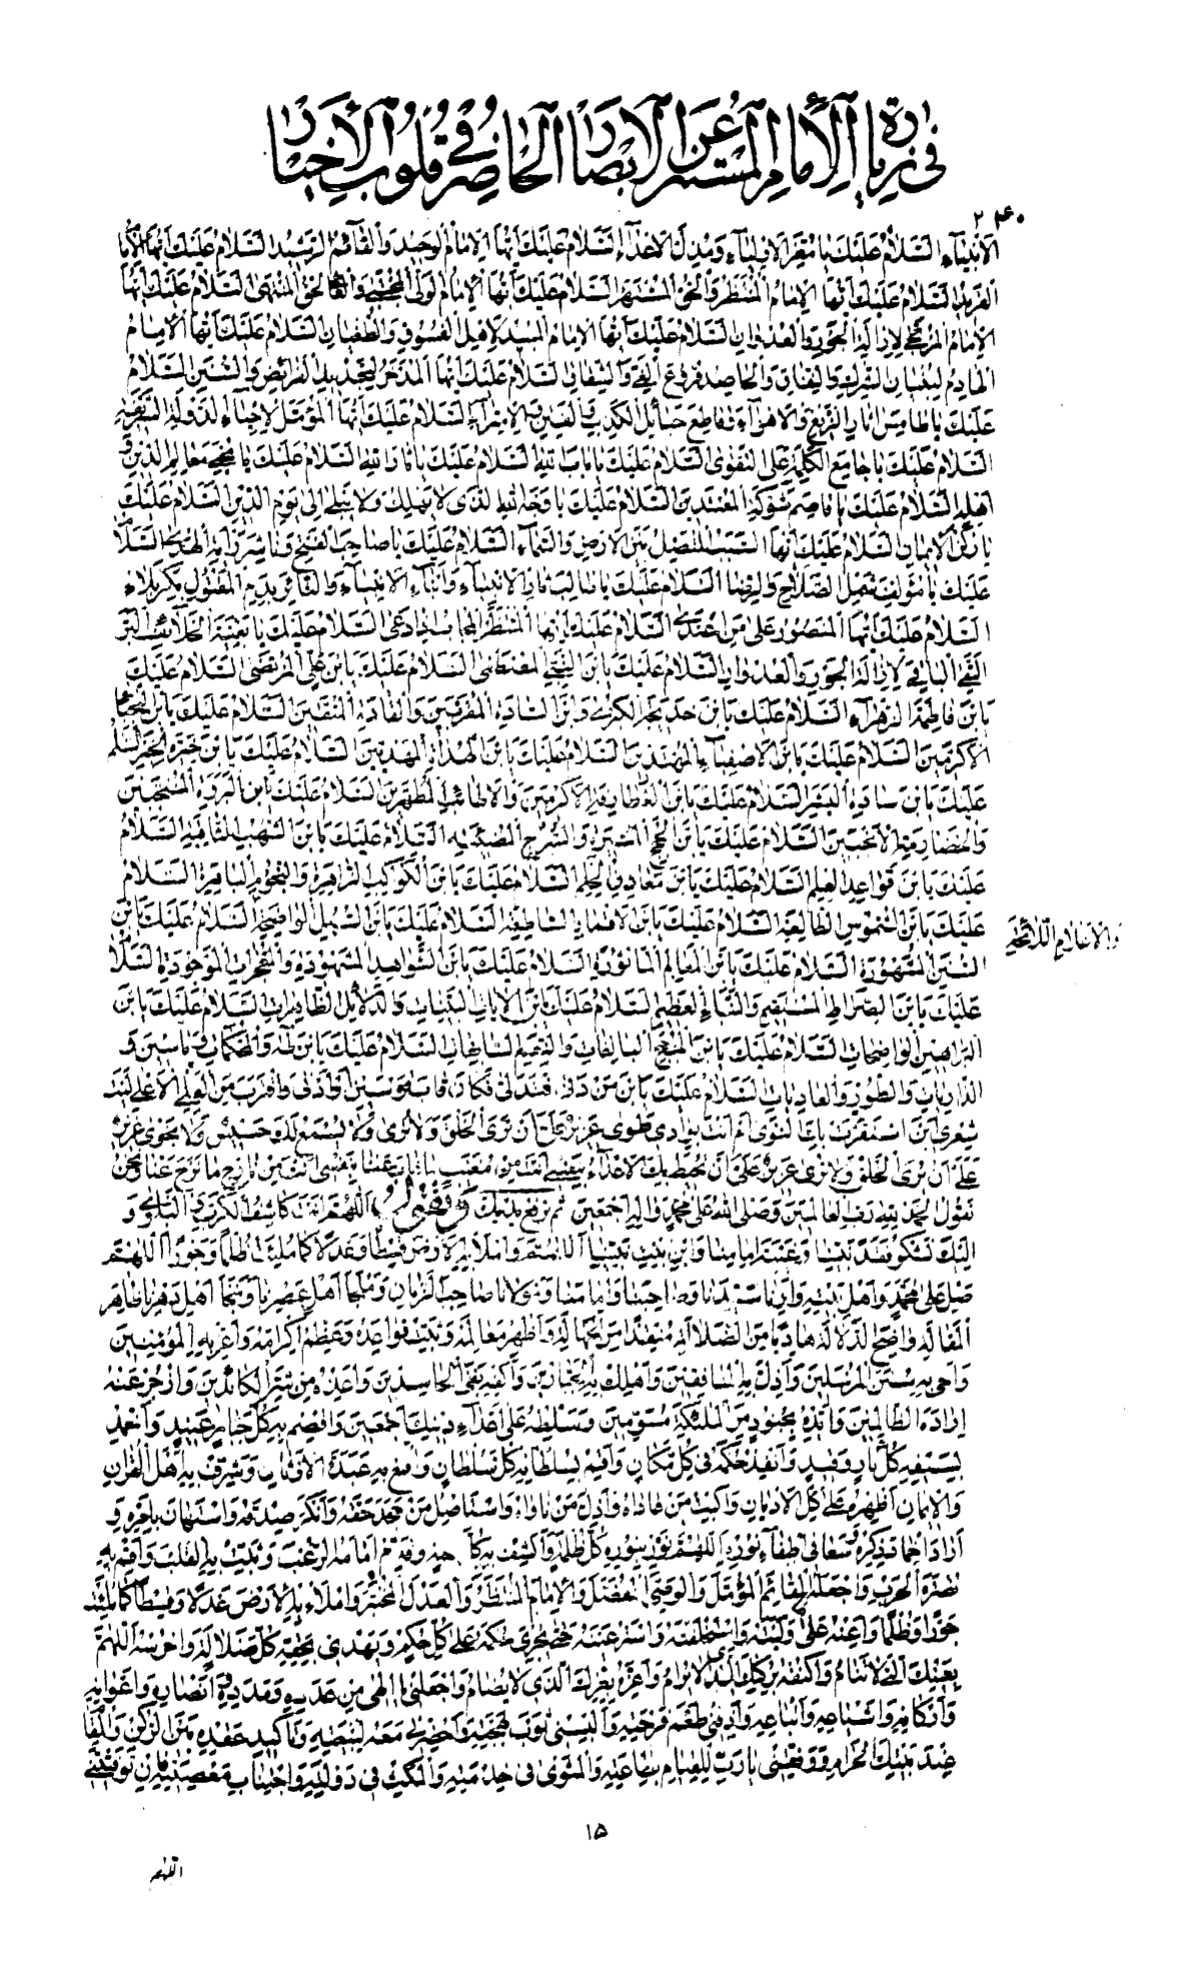 في زيارة الإمام المستتر عن الأبصار الحاضر في قلوب الأخيار
٢٤٠
الأنبياء السلام عليك يا معز الأولياء ومذل الأعداء السلام عليك أيها الإمام الوحيد والقائم الرشيد السلام عليك أيها الإمام
الفريد السلام عليك أيها الإمام المنتظر والحق المشتهر السلام عليك أيها الإمام الولي المجتبى والحق المنتهى السلام عليك أيها
الإمام المرتجى لإزالة الجور والعدوان السلام عليك أيها الإمام المبيد لأهل الفسوق والطغيان السلام عليك أيها الإمام
الهادم لبنيان الشرك والنفاق والحاصد فروع الغي والشقاق السلام عليك أيها المدخر لتجديد الفرائض والسنن السلام
عليك يا طامس آثار الزيغ والأهواء وقاطع حبائل الكذب والفتن والامتراء السلام عليك أيها المؤمل لإحياء الدولة الشريفة
السلام عليك يا جامع الكلمة على التقوى السلام عليك يا باب الله السلام عليك يا ثار الله السلام عليك يا محيي معالم الدين و
أهله السلام عليك يا قاصم شوكة المعتدين السلام عليك يا وجه الله الذي لا يهلك ولا يبلى إلى يوم الدين السلام عليك
يا ركن الإيمان السلام عليك أيها السبب المتصل بين الأرض والسماء السلام عليك يا صاحب الفتح وناشر راية الهدى السلام
عليك يا مؤلف شمل الصلاح والرضا السلام عليك يا طالب ثار الأنبياء وأبناء الأنبياء والثائر بدم المقتول بكربلاء
السلام عليك أيها المنصور على من اعتدى السلام عليك أيها المنتظر المجاب إذا دعى السلام عليك يا بقية الخلائف البر
التقي الباقي لإزالة الجور والعدوان السلام عليك يا بن النبي المصطفى السلام عليك يا بن علي المرتضى السلام عليك
يا بن فاطمة الزهراء السلام عليك يا بن خديجة الكبرى وابن السادة المقربين والقادة المتقين السلام عليك يا بن النجباء
الأكرمين السلام عليك يا بن الأصفياء المهتدين السلام عليك يا بن الهداة المهديين السلام عليك يا بن خيرة الخير السلام
عليك يا بن سادة البشر السلام عليك يا بن الغطارفة الأكرمين والأطائب المطهرين السلام عليك يا بن البررة المنتجبين
والخضارمة الأنجبين السلام عليك يا بن الحجج المنيرة والسرج المضيئة السلام عليك يا بن الشهب الثاقبة السلام
عليك يا بن قواعد العلم السلام عليك يا بن معادن الحلم السلام عليك يا بن الكواكب الزاهرة والنجوم الباهرة السلام
عليك يا بن الشموس الطالعة السلام عليك يا بن الأقمار الساطعة السلام عليك يا بن السبل الواضحة السلام عليك يا بن
والأعلام اللائحة
السنن المشهورة السلام عليك يا بن المعالم المأثورة السلام عليك يا بن الشواهد المشهودة والمعجزات الموجودة السلام
عليك يا بن الصراط المستقيم والنبأ العظيم السلام عليك يا بن الآيات البينات والدلائل الظاهرات السلام عليك يا بن
البراهين الواضحات السلام عليك يا بن الحجج البالغات والنعم السابغات السلام عليك يا بن طه والمحكمات ويسين و
الذاريات والطور والعاديات السلام عليك يا بن من دنى فتدلى فكان قاب قوسين أو أدنى واقترب من العلي الأعلى ليت
شعري أين استقرت بك النوى أم أنت بوادي طوى عزيز علي أن ترى الخلق ولا ترى ولا يسمع لك حسيس ولا نجوى عزيز
علي أن يرى الخلق ولا ترى عزيز علي أن تحيط بك الأعداء بنفسي أنت من مغيب ما غاب عنا بنفسي أنت من نازح ما نزح عنا ونحن
نقول الحمد لله رب العالمين وصلى الله على محمد وآله أجمعين ثم ترفع يديك وتقول اللهم أنت كاشف الكرب والبلوى و
إليك نشكو فقد نبينا وغيبة إمامنا وابن بنت نبينا اللهم واملأ به الأرض قسطا وعدلا كما ملئت ظلما وجورا اللهم
صل على محمد وأهل بيته وأرنا سيدنا وصاحبنا وإمامنا ومولانا صاحب الزمان وملجأ أهل عصرنا ومنجا أهل دهرنا ظاهر
المقالة واضح الدلالة هاديا من الضلالة منقذا من الجهالة وأظهر معالمه وثبت قواعده وعظم إكرامه وأعز به المؤمنين
وأحي به سنن المرسلين وأذل به المنافقين وأهلك به الجبارين وأكفه بغي الحاسدين وأعذه من شر الكائدين وازجر عنه
إرادة الظالمين وأيده بجنود من الملائكة مسومين وسلطه على أعداء دينك أجمعين واقصم به كل جبار عنيد وأخمد
بسيفه كل نار وقيد وأنفذ حكمه في كل مكان وأقم بسلطانه كل سلطان واقمع به عبدة الأوثان وشرف به أهل القرآن
والإيمان أظهره على كل الأديان واكبت من عاداه وأذل من ناواه واستأصل من جحد حقه وأنكر صدقه واستهان بأمره و
أراد إخماد ذكره وسعى في إطفاء نوره اللهم نور بنوره كل ظلمة واكشف به كل وقدم أمامه الرعب وثبت به القلب وأقم به
نصرة الحرب واجعله القائم المؤمل والوصي المفضل والإمام المنتظر والعدل المختبر واملأ به الأرض عدلا وقسطا كما ملئت
جورا وظلما وأعنه على ما وليته واستخلفته واسترعيته حتى يجري حكمه على كل حكم ويهدي بحقه كل ضلالة واحرسه اللهم
بعينك التي لا تنام واكنفه بركنك الذي لا يرام وأعزه بعزك الذي لا يضام واجعلني إلهي من عدده ومدده وأنصاره وأعوانه
وأركانه وأشياعه وأتباعه وأذقني طعم فرحته وألبسني ثوب بهجته وأحضرني معه لبيعته وتأكيد عقده بين الركن والمقام
عند بيتك الحرام ووفقني يا رب للقيام بطاعته والمثوى في خدمته والمكث في دولته واجتناب معصيته فإن توفيتني
١٥
اللهم